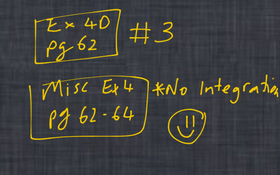 Ex 4D
pg 62
#3
Misc Ex 4
pg 62-64
*No Integration